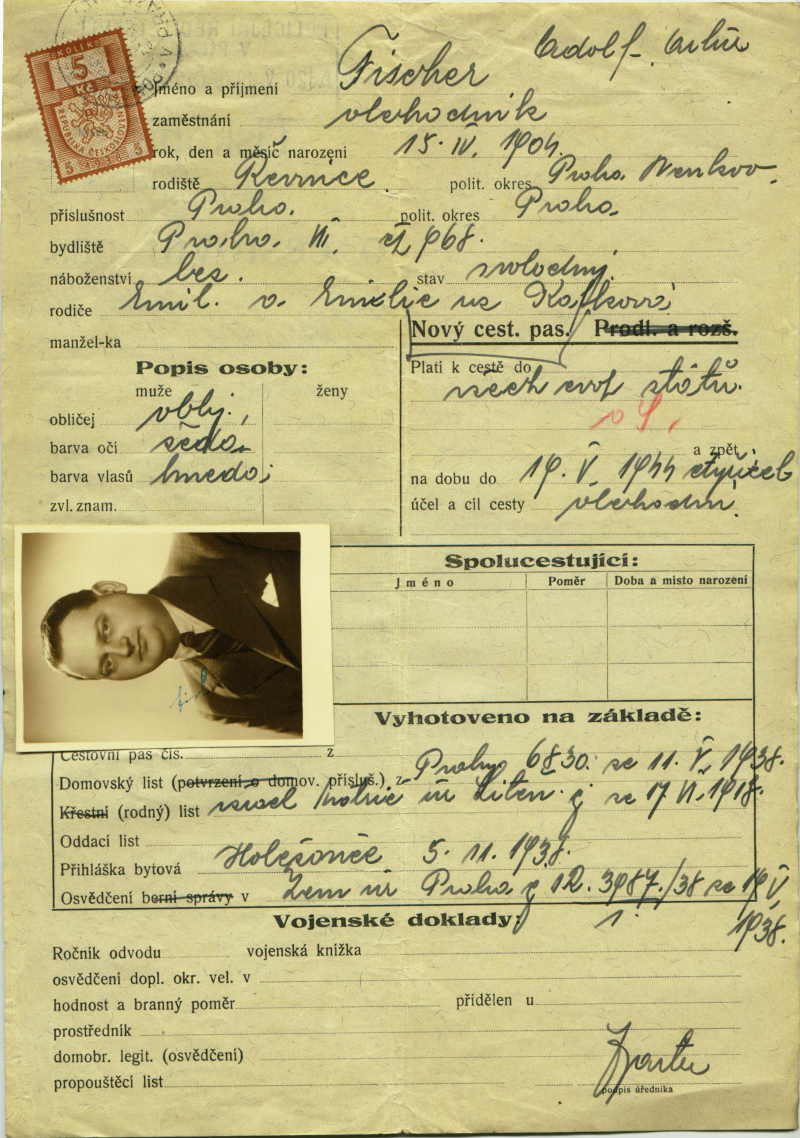 Adolf
KOLEK
5
Kč
REPUBLIKA ČESKOSLOVENSKÁ
5 5
Jméno a příjmení Fischer
zaměstnání obchodník
rok, den a měsíc narození 15. IV. 1904.
rodiště Řevnice polit. okres Praha Venkov.
příslušnost Praha. polit. okres Praha.
bydliště Praha VII. 968.
náboženství bez. stav svobodný.
rodiče Emil. a Emilie
manžel-ka
Nový cest. pas. Prodl. a rozš.
Popis osoby:
muže ženy
obličej obl.
barva očí šedá
barva vlasů hnědá
zvl. znam.
Platí k cestě do
všech evr. států.
a zpět
na dobu do 19. V. 1944
účel a cíl cesty obchodní.
Spolucestující:
Jméno Poměr Doba a místo narození
Vyhotoveno na základě:
Cestovní pas čís. z
Domovský list (potvrzení o domov. přísluš.) z Prahy 6830. ze 11. V. 1938.
Křestní (rodný) list israel. ze 17. VI. 1918.
Oddací list
Přihláška bytová Holešovice 5. 11. 1938.
Osvědčení berní správy v Praha 12. 3987./38 ze
V.
1938.
Vojenské doklady:
Ročník odvodu vojenská knížka
osvědčení dopl. okr. vel. v
hodnost a branný poměr přidělen u
prostředník
domobr. legit. (osvědčení)
propouštěcí list
podpis úředníka